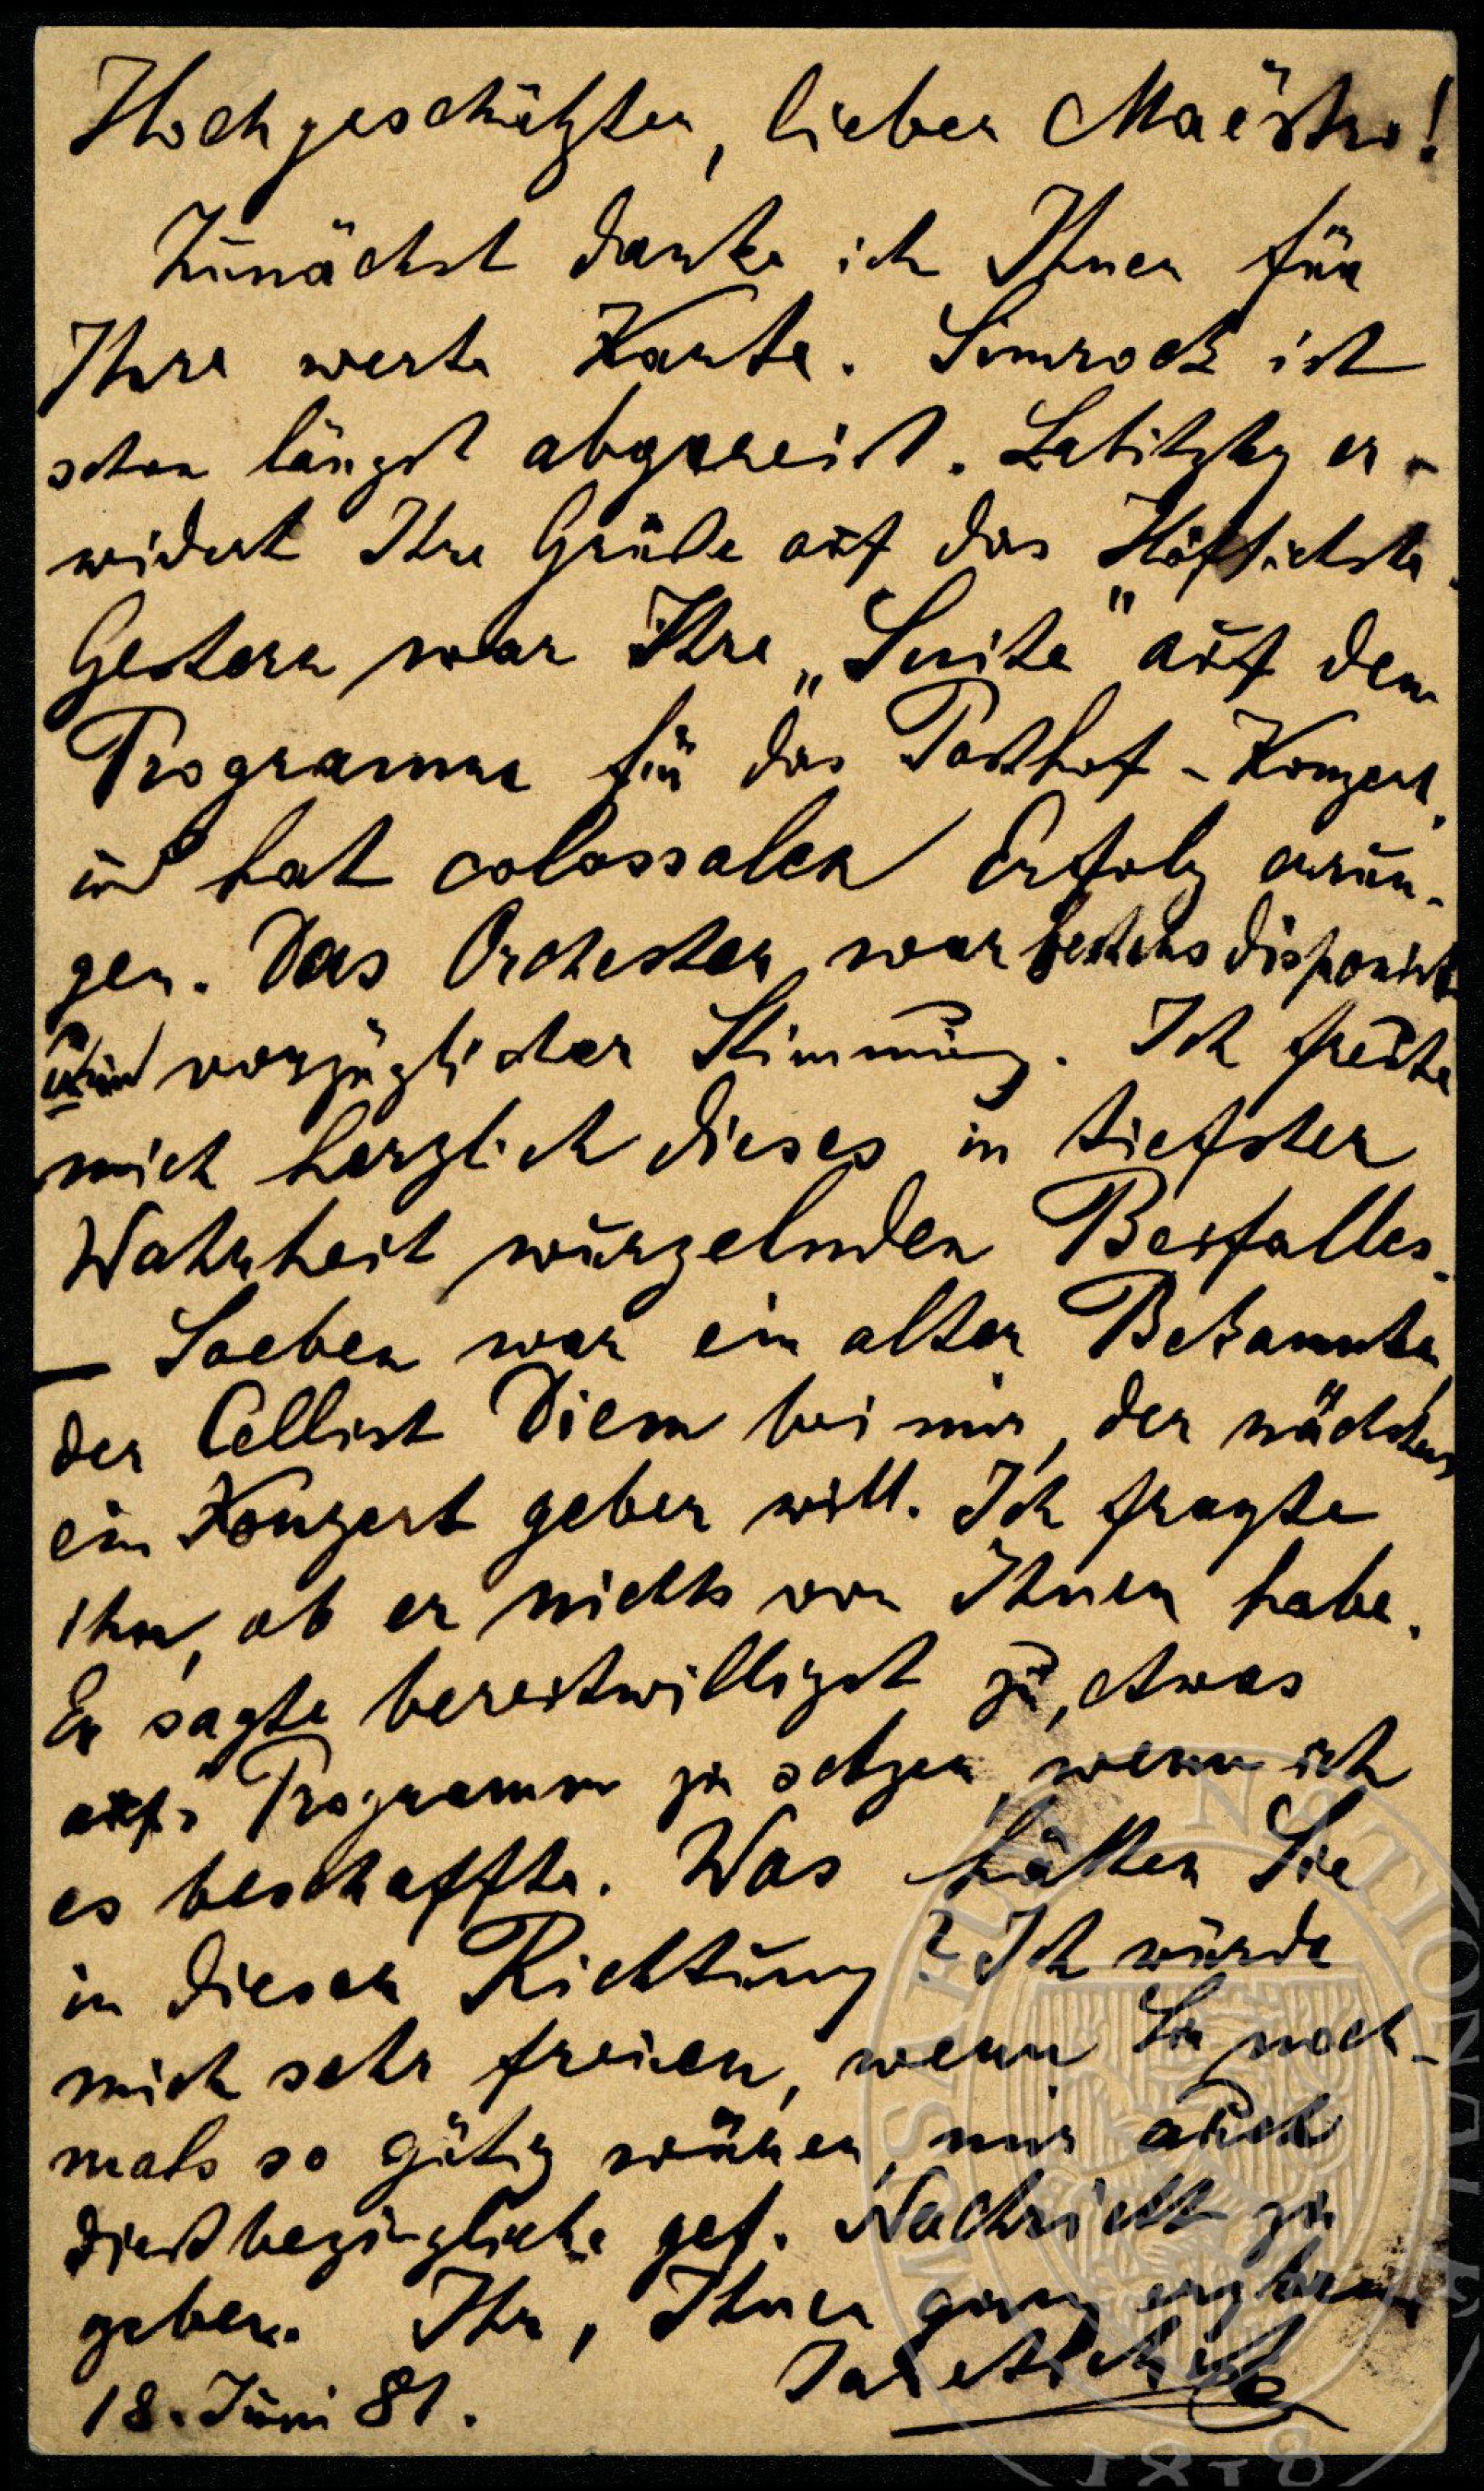 Hochgeschätzter, lieber Maëstro!
Zunächst danke ich Ihnen für
Ihre werte Karte. Simrock ist
schon längst abgereist. Labitzky er-
widert Ihre Grüße auf das Höflichste.
Gestern war Ihre „Suite" auf dem
Programme für das Posthof-Konzert,
und hat colossalen Erfolg errun-
gen. Das Orchester war bestens disponirt
und in vorzüglicher Stimmung. Ich freute
mich herzlich dieses in tiefster
Wahrheit wurzelnden Beifalles.
— Soeben war ein alter Bekannter,
der Cellist Diem bei mir, der nächstens
ein Konzert geben will. Ich fragte
ihn, ob er nichts von Ihnen habe.
Er sagte bereitwilligst zu, etwas
aufs Programm zu setzen, wenn ich
es beschaffte. Was hätten Sie
in dieser Richtung? Ich würde
mich sehr freuen, wenn Sie noch-
mals so gütig wären, mir auch
dießbezügliche gef. Nachricht zu
geben. Ihr, Ihnen ganz ergebener
18. Juni 81.